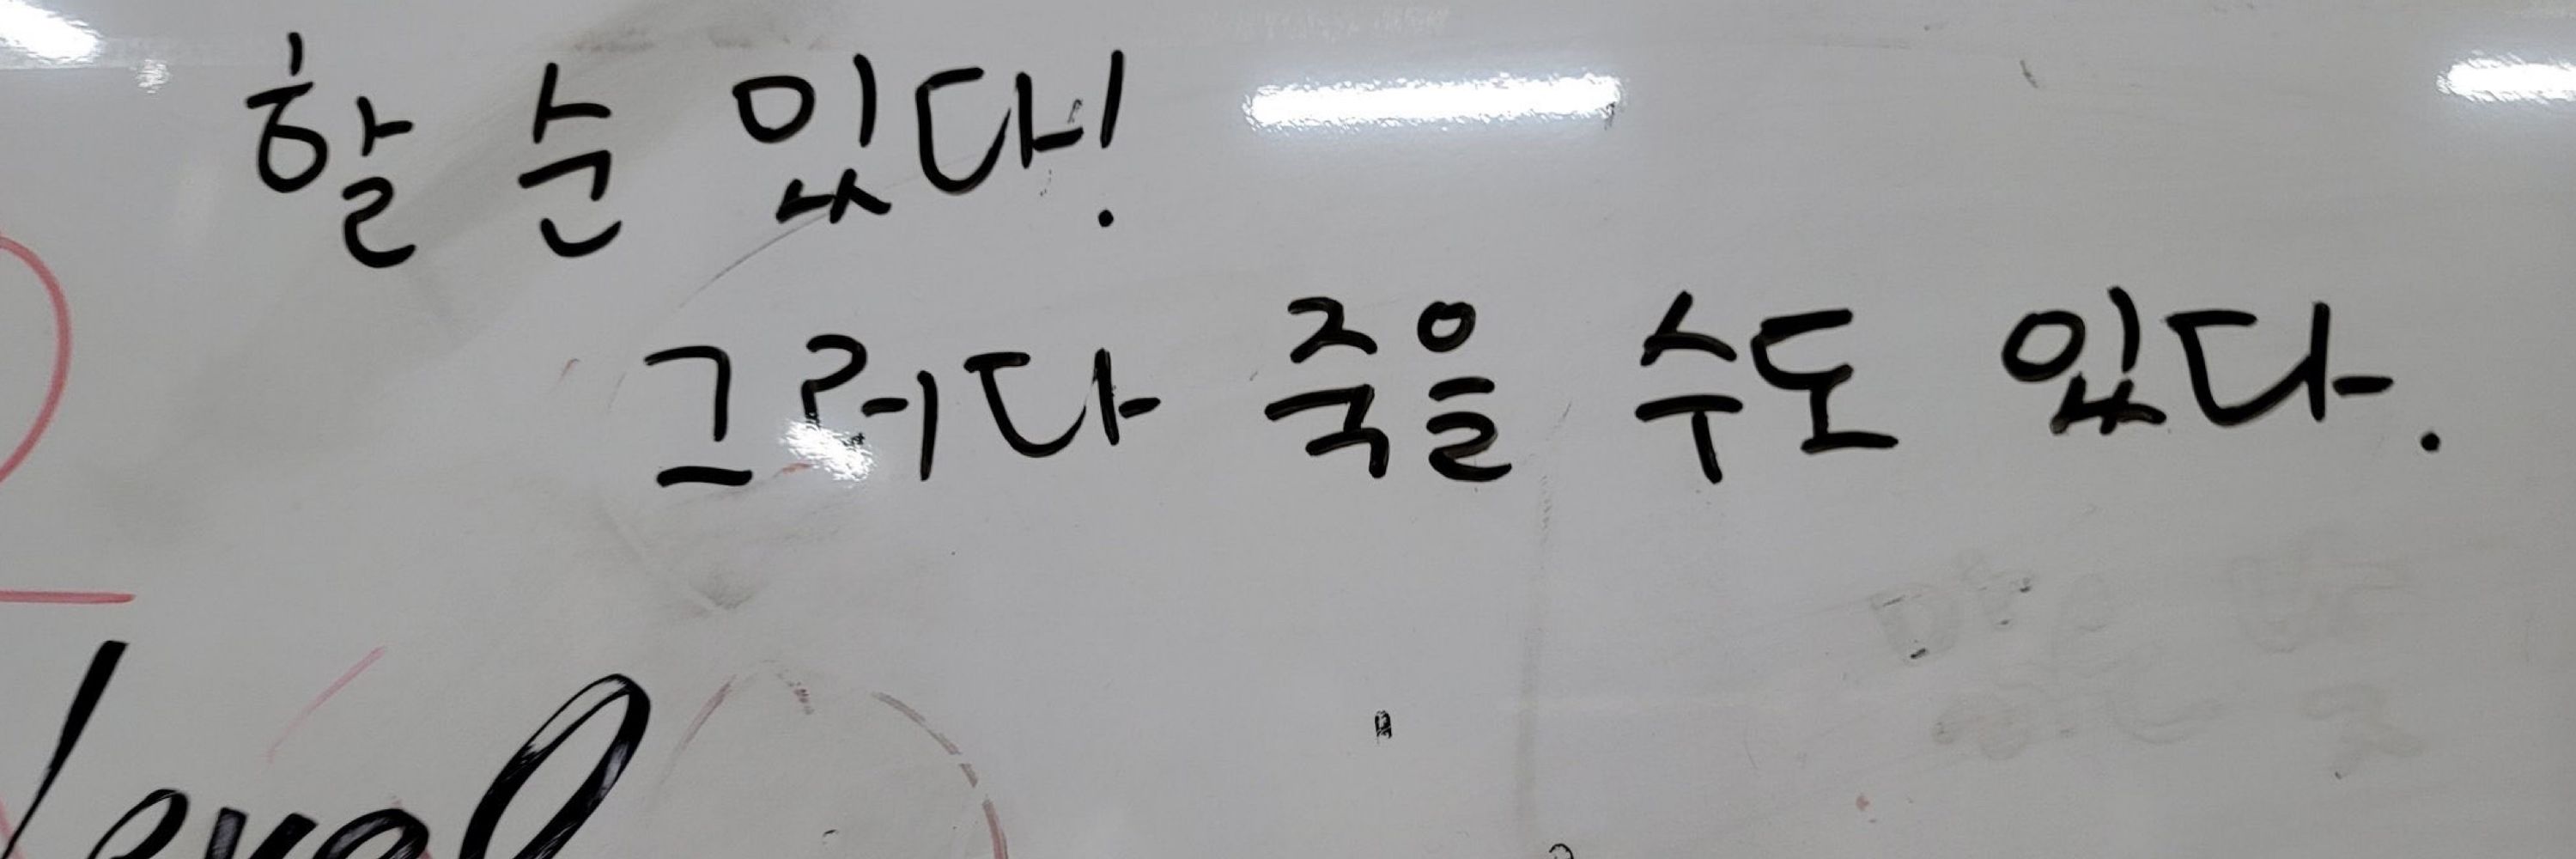 할 순 있다!
그러다 죽을 수도 있다.
level